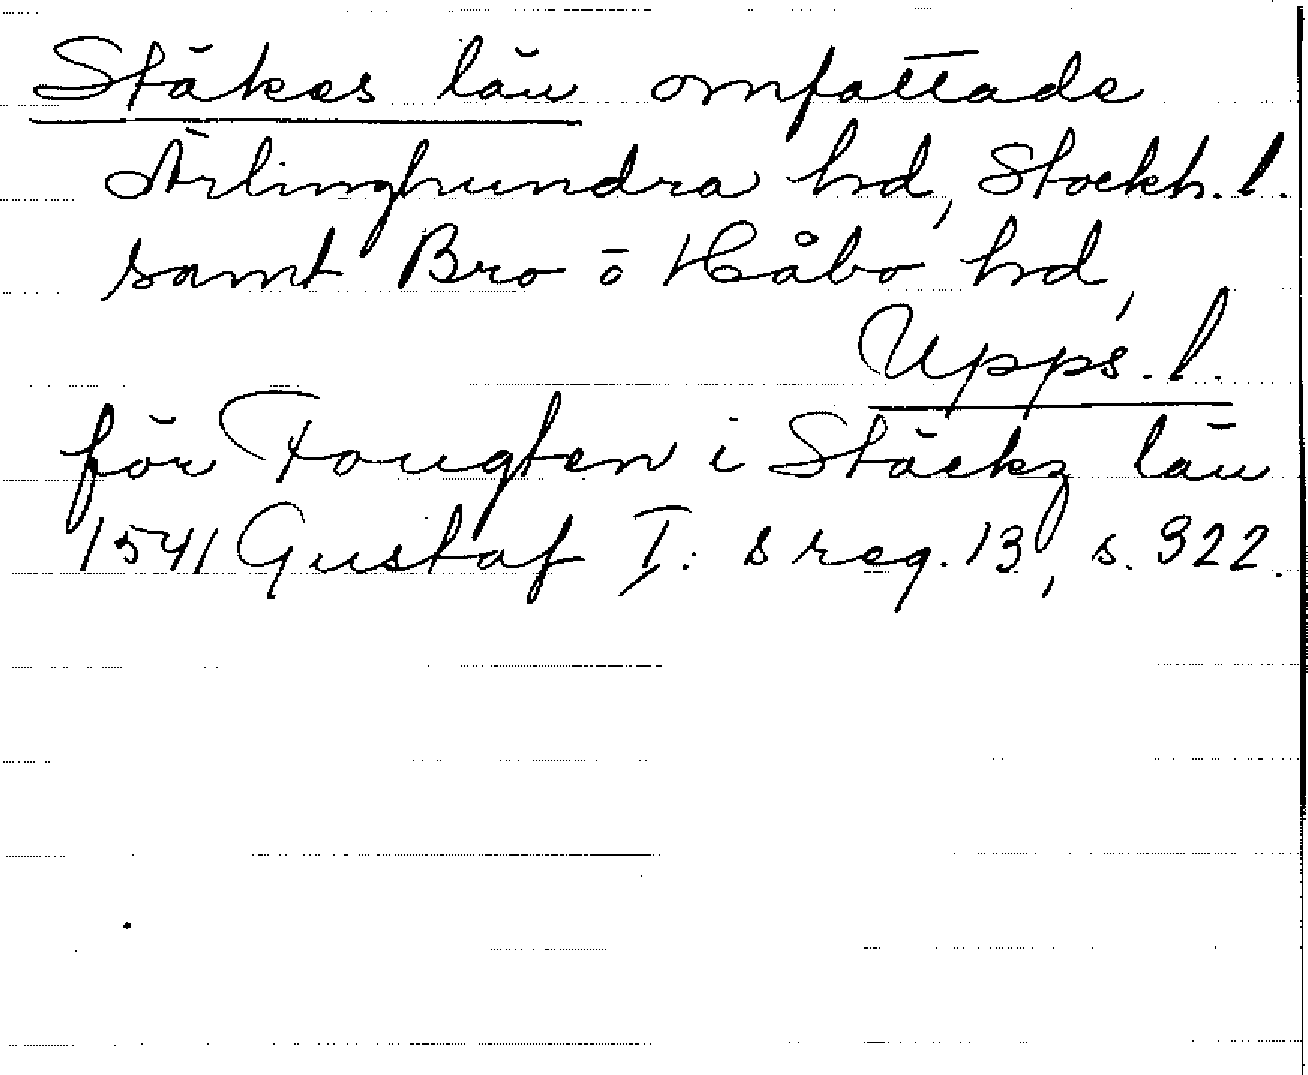 Stäkes län omfattade
Ärlinghundra hd, Stockh. l.
samt Bro o Håbo hd,
Upps. l.
för Fougten i Stäckz län
1541 Gustaf I: s reg. 13, s. 322.